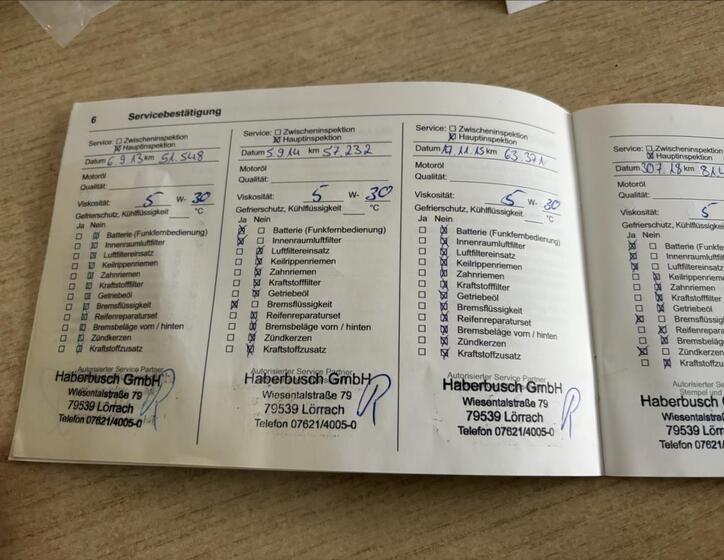 6 Servicebestätigung
Service: Zwischeninspektion
Hauptinspektion
Datum 6.9.13 km 51.548
Motoröl
Qualität:
Viskosität: 5 W- 30
Gefrierschutz, Kühlflüssigkeit °C
Ja Nein
Batterie (Funkfernbedienung)
Innenraumluftfilter
Luftfiltereinsatz
Keilrippenriemen
Zahnriemen
Kraftstofffilter
Getriebeöl
Bremsflüssigkeit
Reifenreparaturset
Bremsbeläge vorn / hinten
Zündkerzen
Kraftstoffzusatz
Autorisierter Service Partner
Haberbusch GmbH
Wiesentalstraße 79
79539 Lörrach
Telefon 07621/4005-0
Service: Zwischeninspektion
Hauptinspektion
Datum 5.9.14 km 57.232
Motoröl
Qualität:
Viskosität: 5 W- 30
Gefrierschutz, Kühlflüssigkeit °C
Ja Nein
Batterie (Funkfernbedienung)
Innenraumluftfilter
Luftfiltereinsatz
Keilrippenriemen
Zahnriemen
Kraftstofffilter
Getriebeöl
Bremsflüssigkeit
Reifenreparaturset
Bremsbeläge vorn / hinten
Zündkerzen
Kraftstoffzusatz
Autorisierter Service Partner
Haberbusch GmbH
Wiesentalstraße 79
79539 Lörrach
Telefon 07621/4005-0
Service: Zwischeninspektion
Hauptinspektion
Datum 17.11.15 km 63.371
Motoröl
Qualität:
Viskosität: 5 W- 30
Gefrierschutz, Kühlflüssigkeit °C
Ja Nein
Batterie (Funkfernbedienung)
Innenraumluftfilter
Luftfiltereinsatz
Keilrippenriemen
Zahnriemen
Kraftstofffilter
Getriebeöl
Bremsflüssigkeit
Reifenreparaturset
Bremsbeläge vorn / hinten
Zündkerzen
Kraftstoffzusatz
Autorisierter Service Partner
Haberbusch GmbH
Wiesentalstraße 79
79539 Lörrach
Telefon 07621/4005-0
Service: Zwischeninspektion
Hauptinspektion
Datum 30.7.18 km
Motoröl
Qualität:
Viskosität: 5
Gefrierschutz, Kühlflüssigk
Ja Nein
Batterie (Funkf
Innenraumluftf
Luftfiltereinsatz
Keilrippenrieme
Zahnriemen
Kraftstofffilter
Getriebeöl
Bremsflüssigk
Reifenrepara
Bremsbeläge
Zündkerzen
Kraftstoffzu
Autorisierter Se
Stempel und
Haberbusch
Wiesentalst
79539 Lörr
Telefon 076